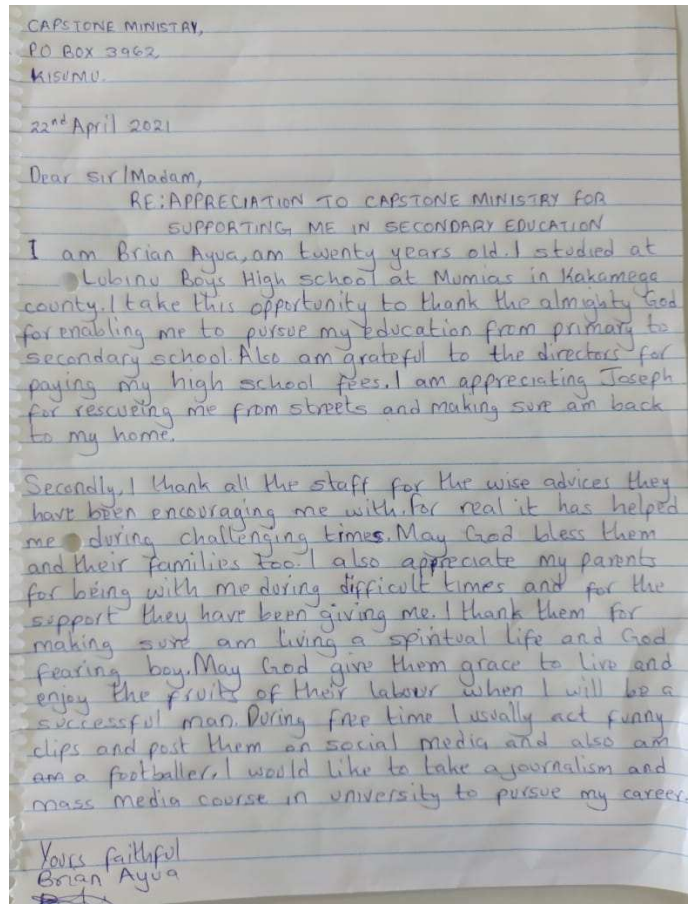 CAPSTONE MINISTRY,
PO BOX 3962,
KISUMU.
22nd April 2021
Dear Sir/Madam,
RE: APPRECIATION TO CAPSTONE MINISTRY FOR
SUPPORTING ME IN SECONDARY EDUCATION
I am Brian Ayua, am twenty years old. I studied at
Lubinu Boys High school at Mumias in Kakamega
county. I take this opportunity to thank the almighty God
for enabling me to pursue my education from primary to
secondary school. Also am grateful to the directors for
paying my high school fees. I am appreciating Joseph
for rescueing me from streets and making sure am back
to my home.
Secondly, I thank all the staff for the wise advices they
have been encouraging me with. For real it has helped
me during challenging times. May God bless them
and their families too. I also appreciate my parents
for being with me during difficult times and for the
support they have been giving me. I thank them for
making sure am living a spiritual life and God
fearing boy. May God give them grace to live and
enjoy the fruits of their labour when I will be a
successful man. During free time I usually act funny
clips and post them on social media and also am
am a footballer. I would like to take a journalism and
mass media course in university to pursue my career.
Yours faithful
Brian Ayua